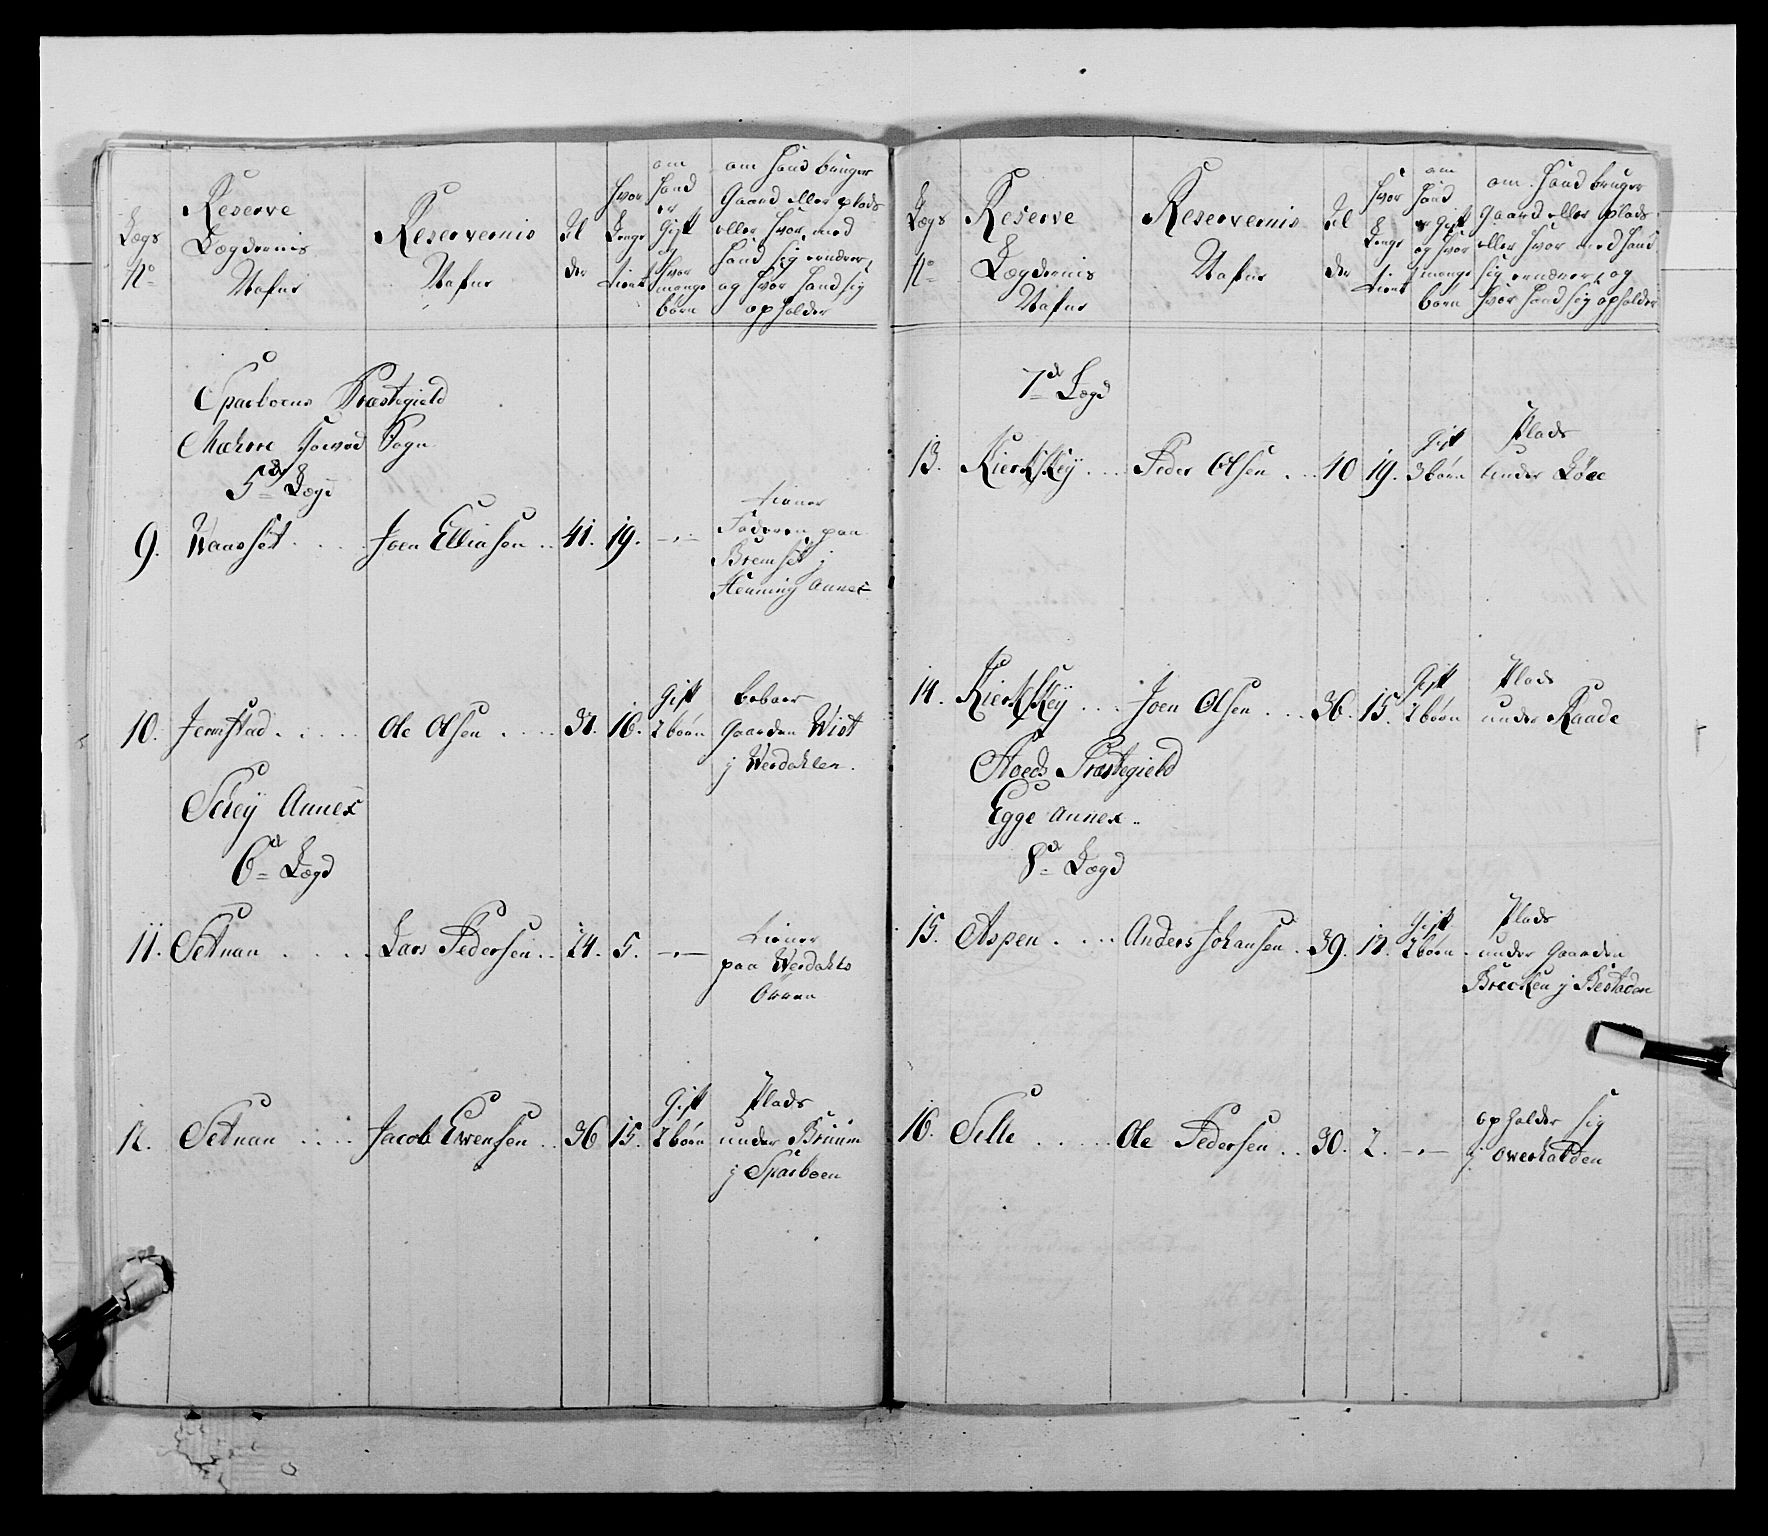 Lægs
No
Reserve
Lægdernis
Nafne
Reservernis
Nafne
Al
der
Hvor
Længe
tient
om
Hand
er
Gift
og
Hvor
mange
børn
om Hand bruger
Gaard eller plads
eller Hvor med
Hand sig ernærer,
og Hvor Hand sig
opholder
Sparboens Præstegield
Mæhrre Hoved Sogn
5de Lægd
9. Wansset Joen Ellinsen 41. 19. -,-
tiener
Faderen paa
Bremset j
Henning Annex
10. Jemstad Ole Olsen 31. 10. Gift 2 børn
beboer
Gaarden Wist
j Werdahlen.
Schey Annex
6de Lægd
11. Setnan Lars Pedersen 24. 5. -,-
tiener
paa Werdahls
Øeren
12. Setnan Jacob Ewensen 36 15. Gift 2 børn
Plads
under Bruum
j Sparboen
Lægs
No
Reserve
Lægdernis
Nafne
Reservernis
Nafne
Al
der
Hvor
Længe
tient
om
Hand
er Gift
og Hvor
mange
børn
om Hand bruger
Gaard eller Plads
eller Hvor med Hand
sig ernærer, og
Hvor Hand sig opholder
7de Lægd
13. Kierkskey Peder Olsen 40 19. Gift 3 børn
Plads
under Løee
14. Kierkskey Joen Olsen 36. 15. Gift 2 børn
Plads
under Raade
Stoeds Præstegield
Egge Annex
8de Lægd
15. Aspen Anders Johansen 39. 12. Gift 2 børn
Plads
under Gaarden
Brecken j Bestaden
16. Selle Ole Pedersen 30. 2. -,-
opholder sig
j Owerhalden